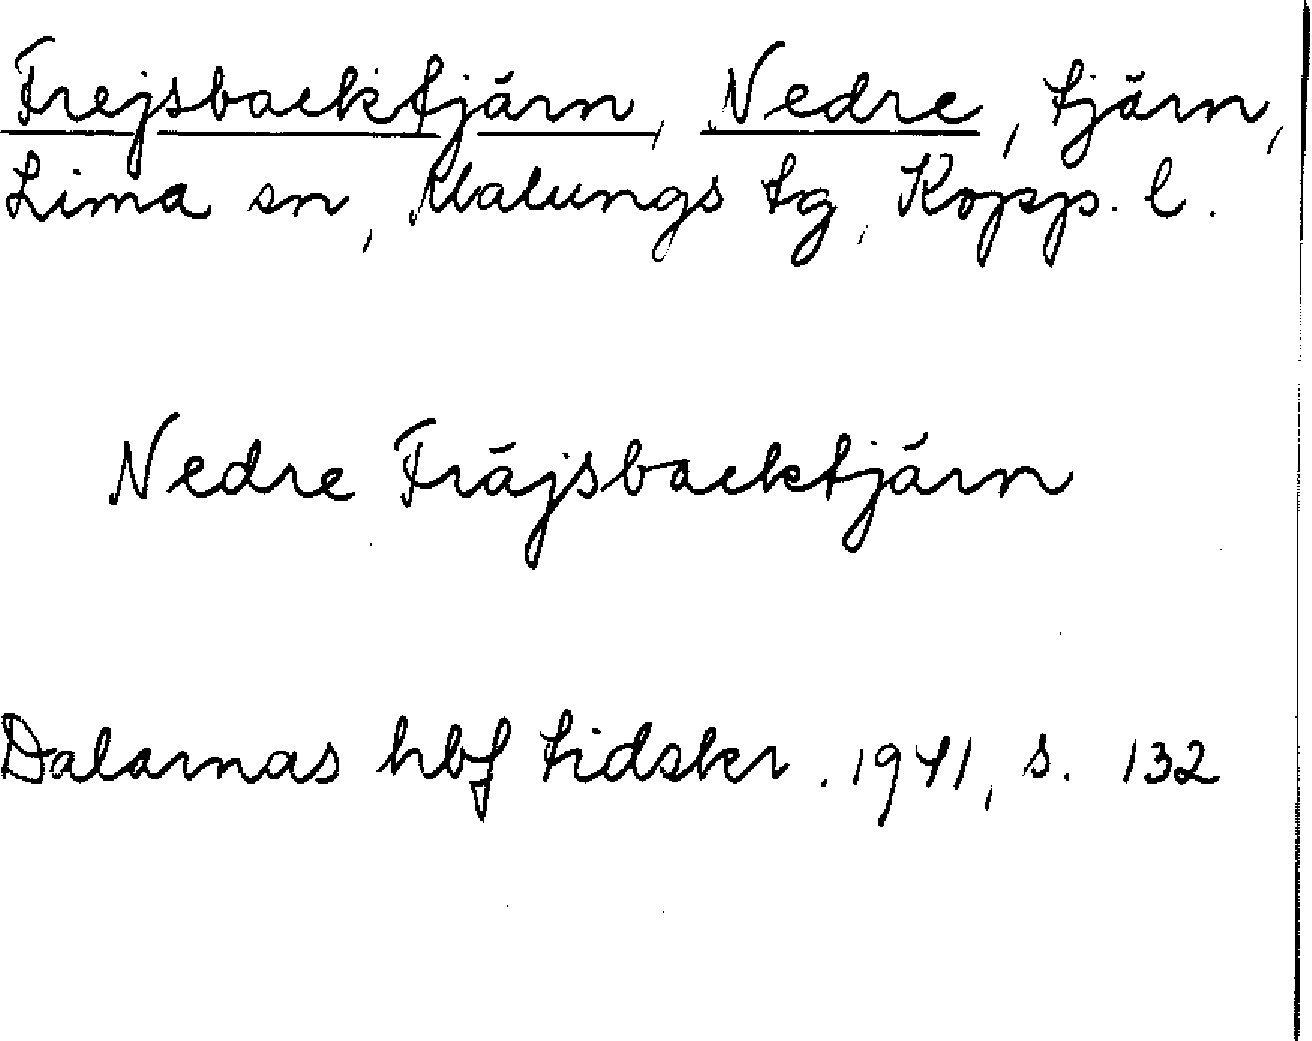 Frejsbacktjärn, Nedre, tjärn,
Lima sn, Malungs tg, Kopp. l.
Nedre Fräjsbacktjärn
Dalarnas hbf tidskr. 1941, s. 132